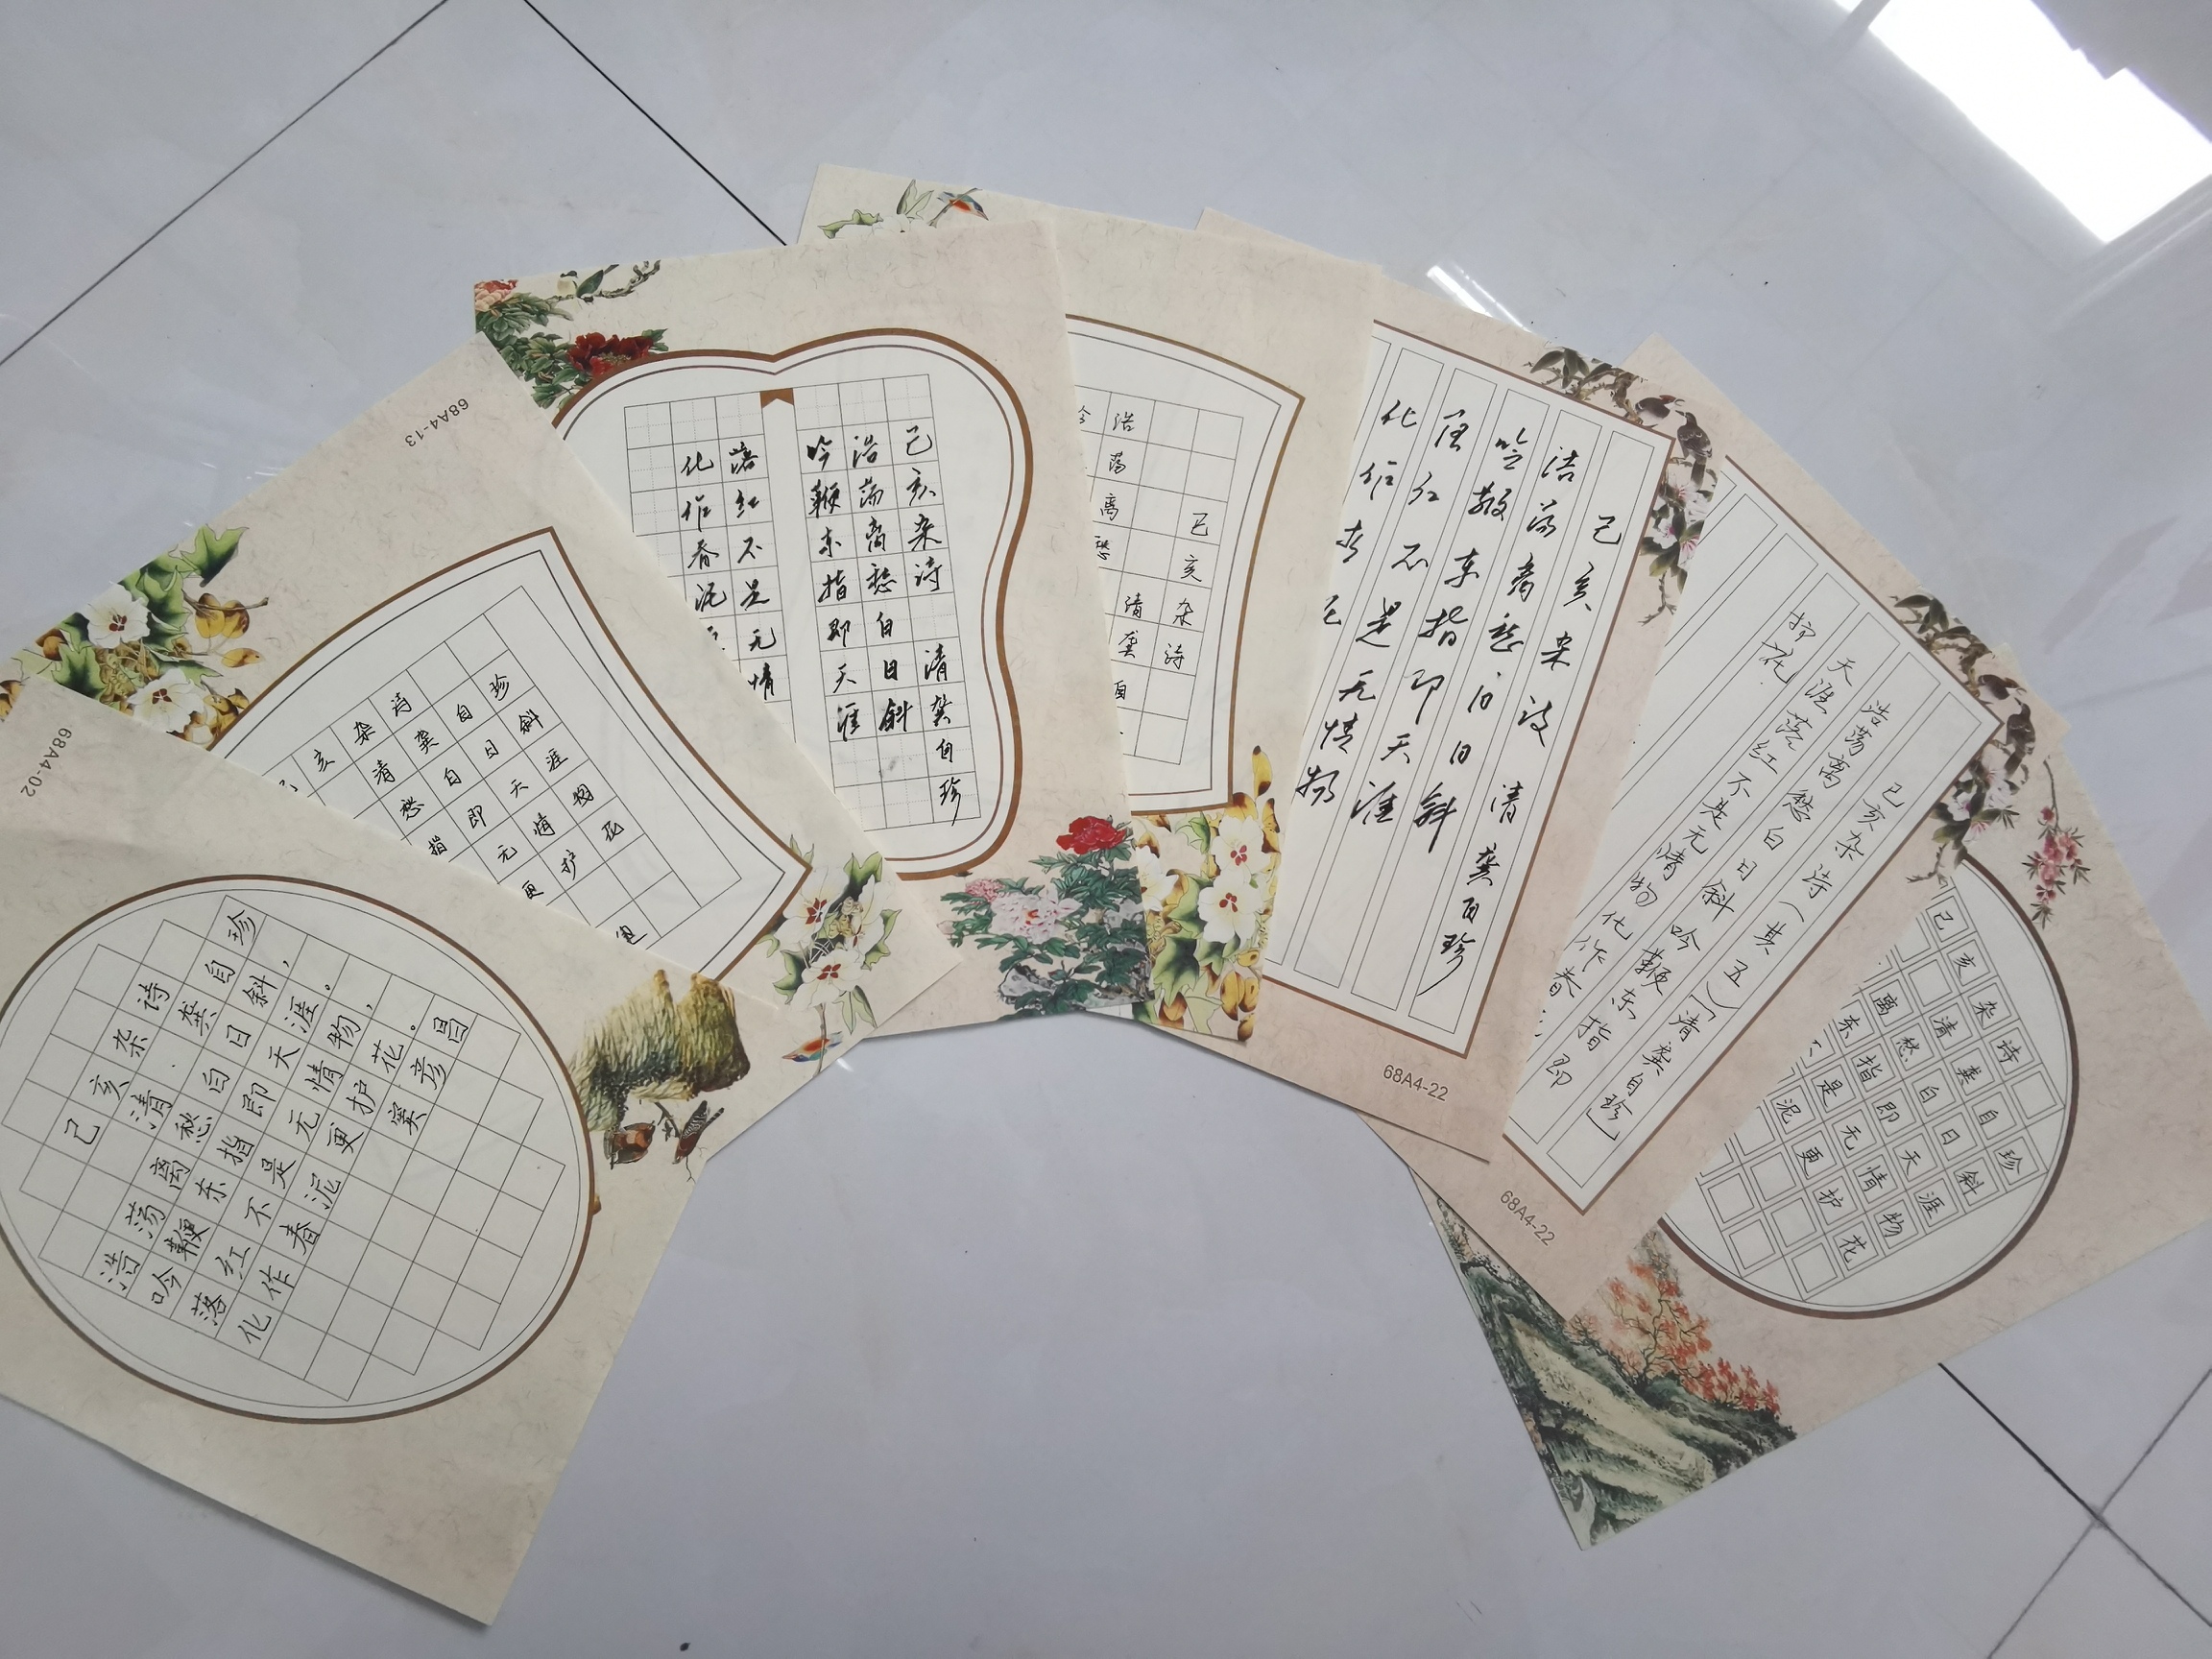 68A4-02
己亥杂诗
清龚自珍
浩荡离愁白日斜，
吟鞭东指即天涯。
落红不是无情物，
化作春泥更护花。
窦彦昌
68A4-13
亥杂诗
清龚自珍
愁白日斜
指即天涯
无情物
更护花
己亥杂诗 清龚自珍
浩荡离愁白日斜
吟鞭东指即天涯
落红不是无情
化作春泥
己亥杂诗
清龚自
浩荡离愁
己亥杂诗 清龚自珍
浩荡离愁白日斜
吟鞭东指即天涯
落红不是无情物
化作春
68A4-22
己亥杂诗(其五)[清龚自珍]
浩荡离愁白日斜吟鞭东指即
天涯落红不是无情物化作春
护花
68A4-22
己亥杂诗
清龚自珍
离愁白日斜
东指即天涯
是无情物
泥更护花